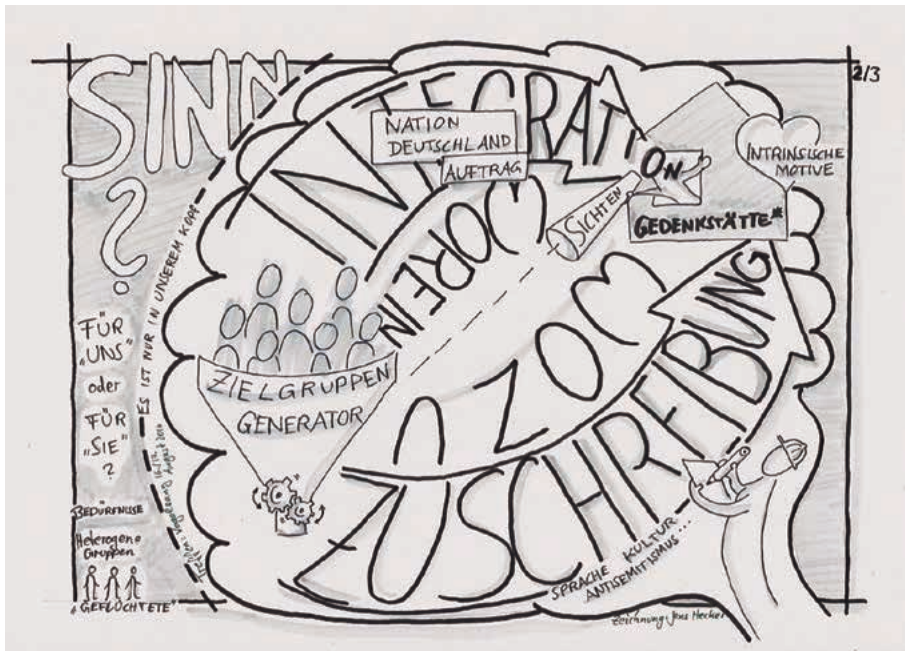 SINN
?
FÜR
„UNS"
oder
FÜR
„SIE"
?
BEDÜRFNISSE
Heterogene
Gruppen
„GEFLÜCHTETE"
ES IST NUR IN UNSEREM KOPF
August
INTEGRATION
NATION
DEUTSCHLAND
AUFTRAG
WOREIN
SICHTEN
GEDENKSTÄTTE*
INTRINSISCHE
MOTIVE
2/3
ZIELGRUPPEN
GENERATOR
WOZU
ZUSCHREIBUNG
SPRACHE KULTUR
ANTISEMITISMUS...
Zeichnung: Jens Hecker